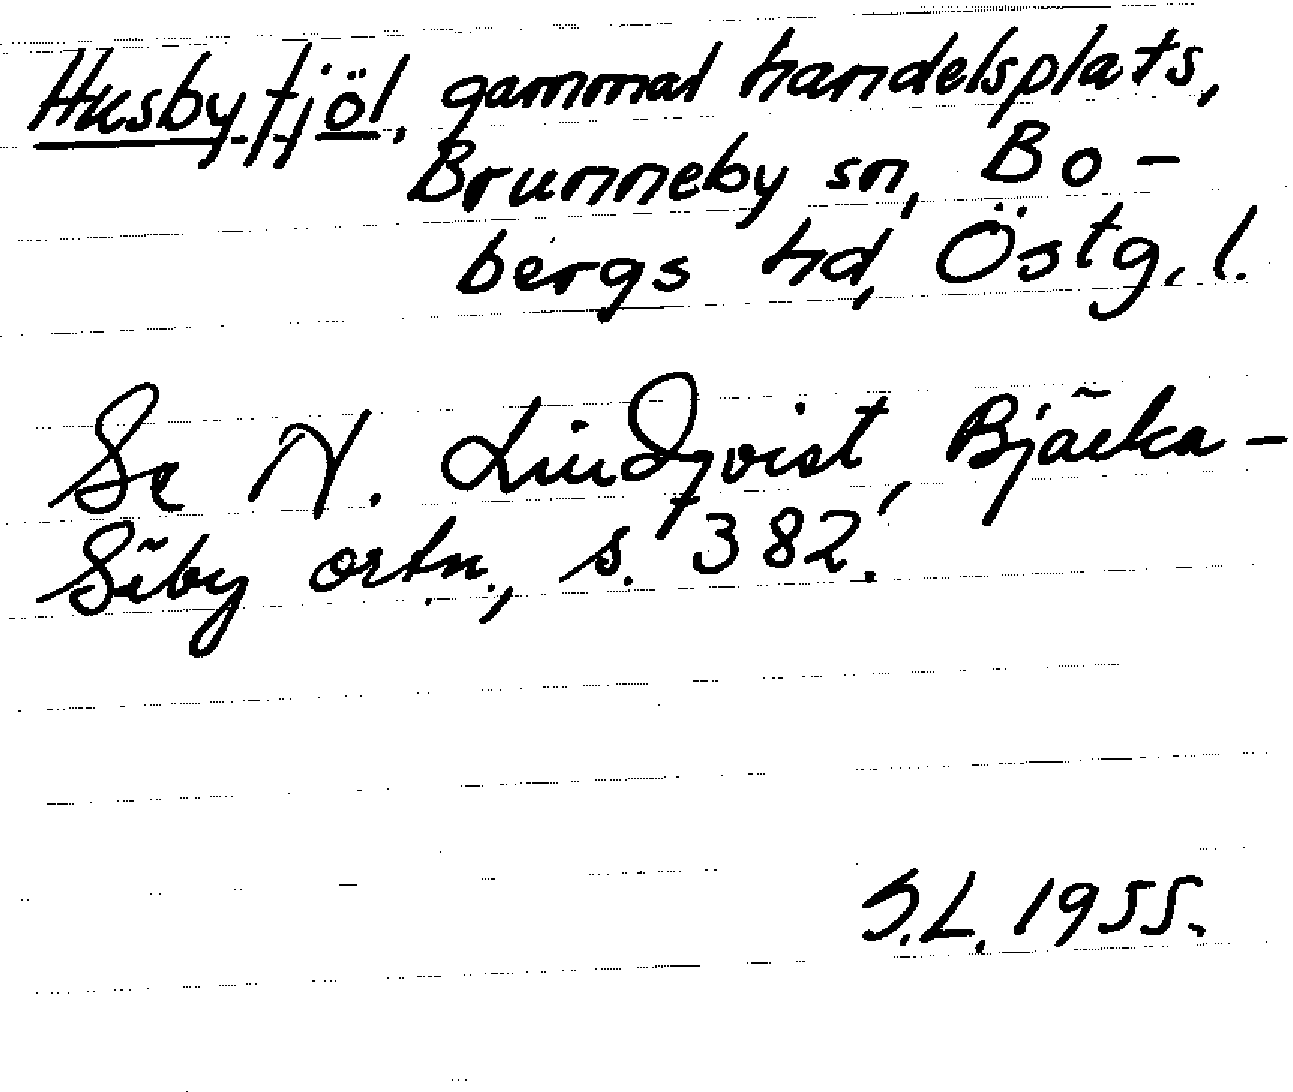 Husbyfjöl, gammal handelsplats,
Brunneby sn, Bo-
bergs hd, Östg. l.
Se N. Lindqvist, Bjärka-
Säby ortn., s. 382.
S.L. 1955.